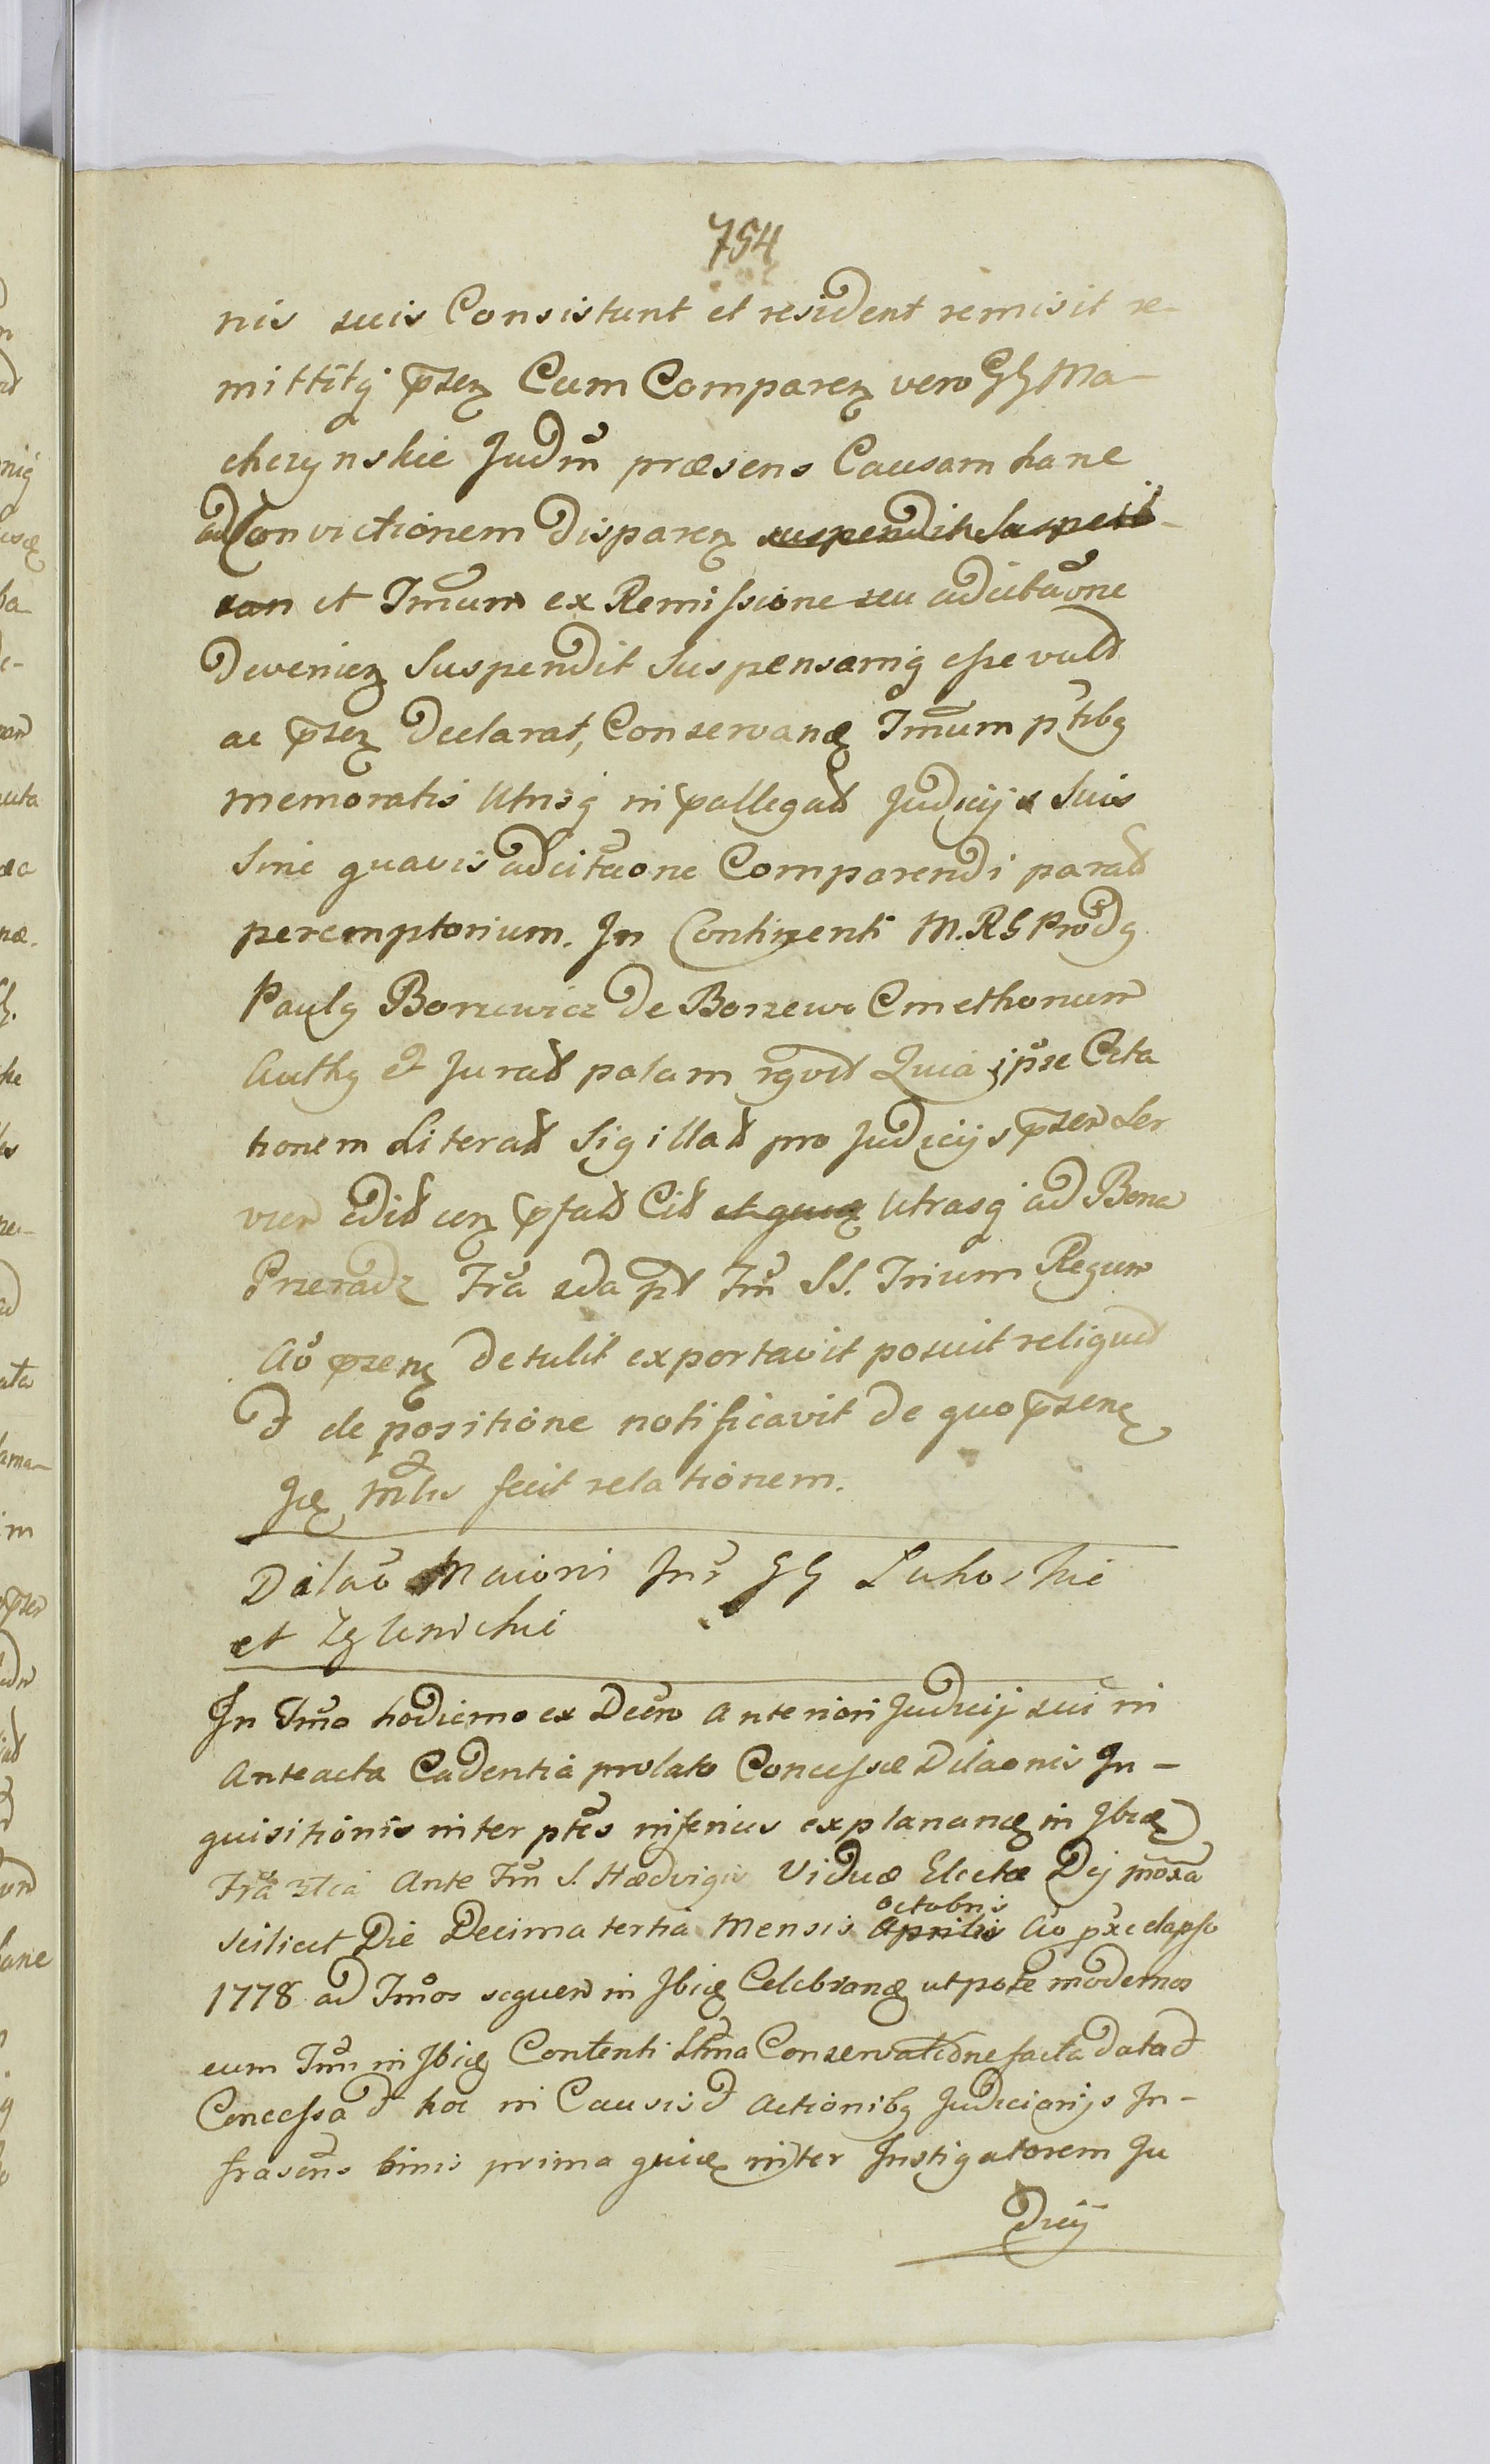 754
nis suis Consistunt et resident remisit re-
mittitq przez Cum Comparez vero GG Ma-
cherynskie Judm præsens Causam hanc
ad Convictionem Disparez suspendit Suspen
san et Tmum ex Remissione seu adcitaone
Deveniez Suspendit Suspensamq esse vult
ac pszez Declarat, Conservanz Tmum ptibq
memoratis Utrisq in pallegad Judicijs Suis
Sine quavis adcitaone Comparendi parad
peremptorium. In Continenti M. RG Prodq
Paulq Borzewicz De Borzewo Cmethonum
Authq et Jurad palam rgvit Quia ipse Cita
tionem Literad Sigillad pro Judicijs pszen Ser
vien edid cez pfad Cit et quoz Utrasq ad Bona
Przeradz Fra 2da pt Fm SS. Trium Regum
Ao pszenz detulit exportavit posuit reliquit
d depositione notificavit de quo pszenz
Jcz Mlus fecit relationem.
Dilao Maioris Inr GG Suhorskie
et Zglenickie
In Tmo hodierno ex Decro Anteriori Judicij sui in
Anteacta Cadentia prolato Concessæ Dilaonis In-
quisitionis inter ptes inferius explananz in Jbicz
Fra 3tia Ante Fm S. Hædvigis Viduæ Electæ Dej proxa
scilicet Die Decima tertia Mensis Aprilis octobris Ao præelapso
1778 ad Tmos sequen in Jbicz Celebranz utpote modernos
cum Tmi in Jbicz Contenti Stma Conservatione facta data d
Concessa d hoc in Causis d Actionibq Judiciarijs In-
frascris binis prima quidz inter Instigatorem Ju
Dicij